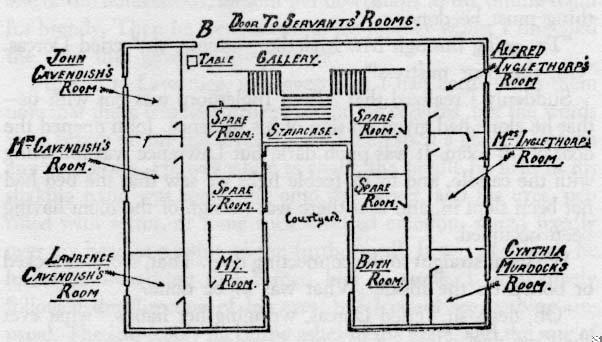 B
DOOR TO SERVANTS' ROOMS.
JOHN
CAVENDISH'S
ROOM
TABLE
GALLERY.
ALFRED
INGLETHORP'S
ROOM
SPARE
ROOM.
STAIRCASE.
SPARE
ROOM.
MRS CAVENDISH'S
ROOM.
MRS INGLETHORP'S
ROOM.
SPARE
ROOM.
SPARE
ROOM.
Courtyard.
LAWRENCE
CAVENDISH'S
ROOM
MY.
ROOM.
BATH
ROOM.
CYNTHIA
MURDOCK'S
ROOM